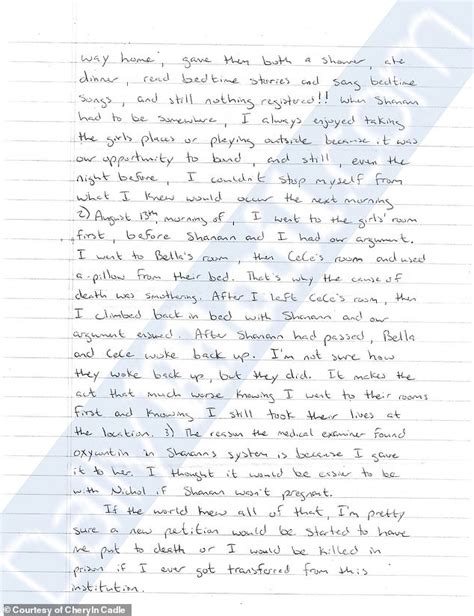 way home, gave them both a shower, ate
dinner, read bedtime stories and sang bedtime
songs, and still nothing registered!! When Shanann
had to be somewhere, I always enjoyed taking
the girls places or playing outside because it was
our opportunity to bond, and still, even the
night before, I couldn't stop myself from
what I knew would occur the next morning
2) August 13th, morning of, I went to the girls' room
first, before Shanann and I had our argument.
I went to Bella's room, then CeCe's room and used
a pillow from their bed. That's why the cause of
death was smothering. After I left CeCe's room, then
I climbed back in bed with Shanann and our
argument ensued. After Shanann had passed, Bella
and CeCe woke back up. I'm not sure how
they woke back up, but they did. It makes the
act that much worse knowing I went to their rooms
first and knowing I still took their lives at
the location. 3) The reason the medical examiner found
oxycontin in Shanann's system is because I gave
it to her. I thought it would be easier to be
with Nichol if Shanann wasn't pregnant.
If the world knew all of that, I'm pretty
sure a new petition would be started to have
me put to death or I would be killed in
prison if I ever got transferred from this
institution.
© Courtesy of Cheryln Cadle